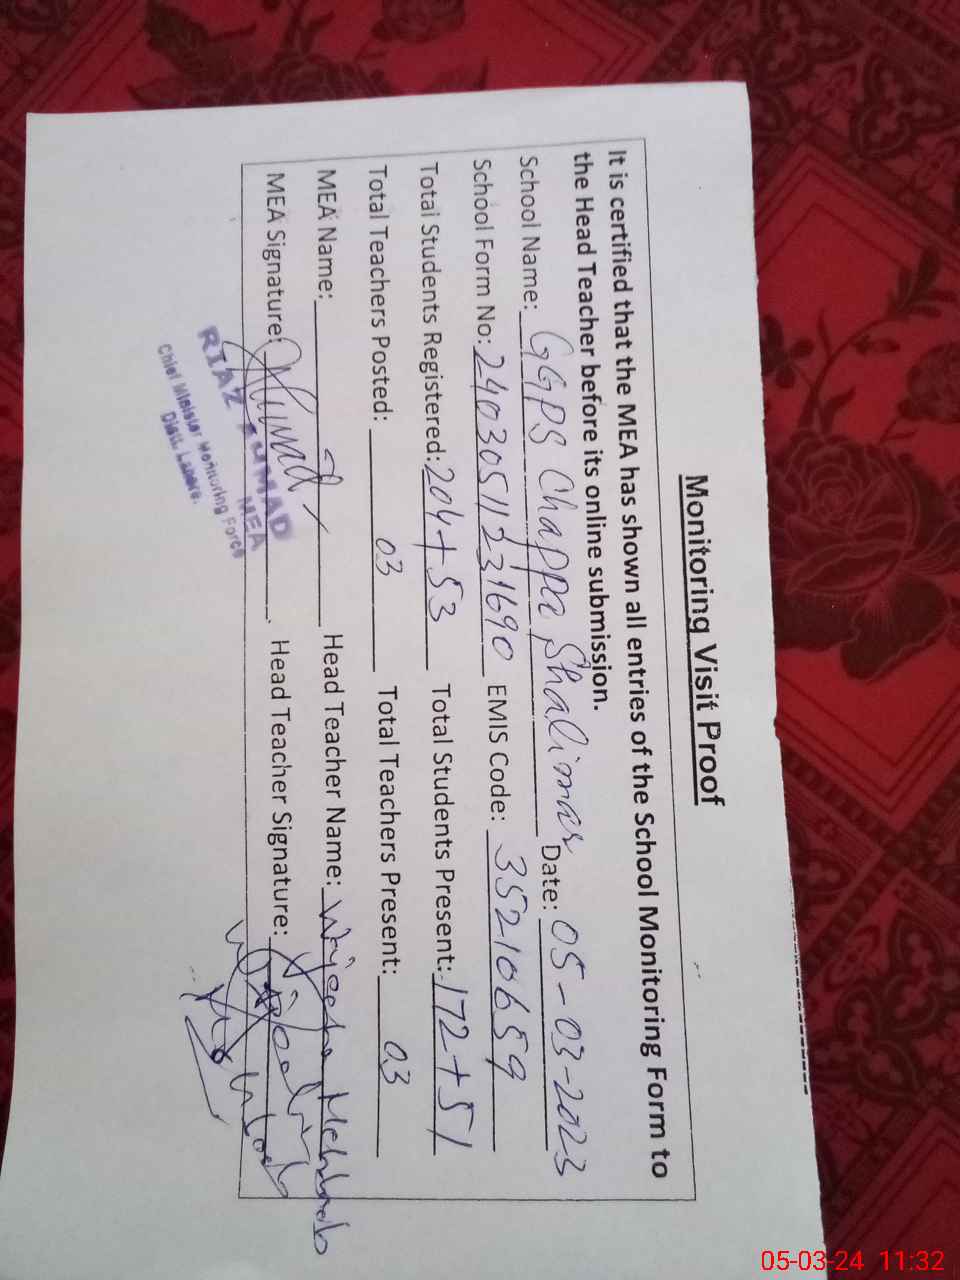 Monitoring Visit Proof
It is certified that the MEA has shown all entries of the School Monitoring Form to
the Head Teacher before its online submission.
School Name: GGPS Chappa Shalimar Date: 05-03-2023
School Form No: 24030511231690 EMIS Code: 35210659
Total Students Registered: 204+53 Total Students Present: 172+51
Total Teachers Posted: 03 Total Teachers Present: 03
MEA Name: Head Teacher Name: Wajeeha Mehboob
MEA Signature: Head Teacher Signature:
RIAZ AHMAD
MEA
Chief Minister Monitoring Force
Distt. Lahore.
05-03-24 11:32